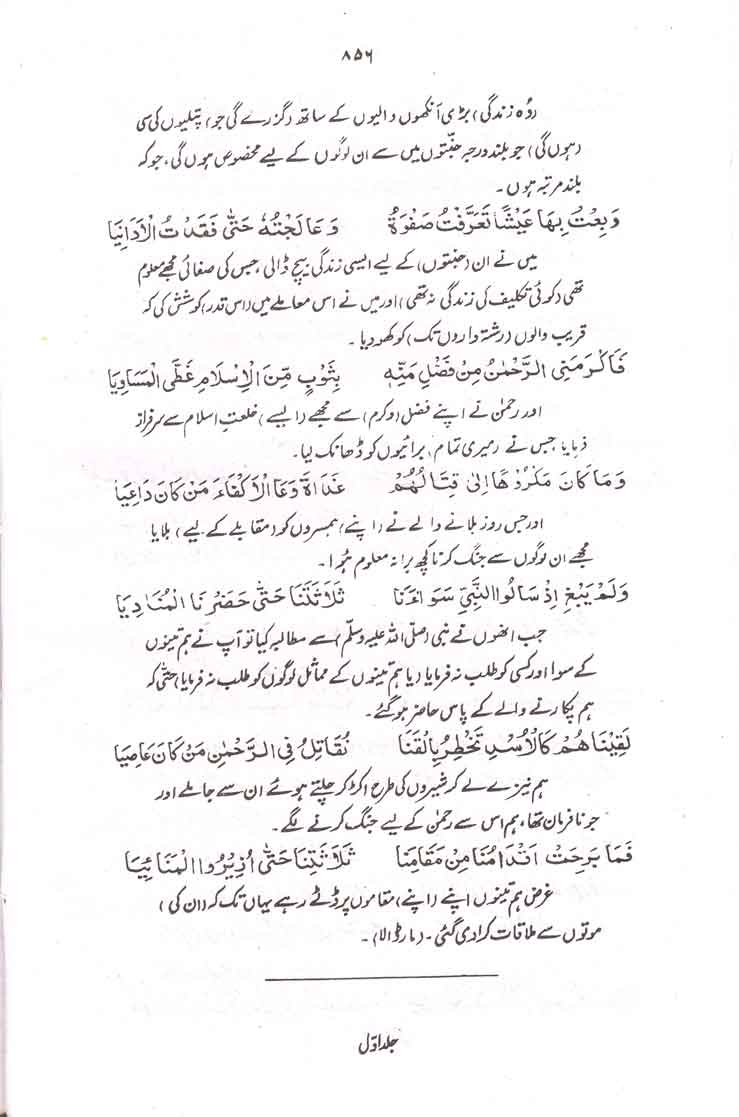 ۸۵۶
(وُہ زندگی) بڑی آنکھوں والیوں کے ساتھ (گزرے گی جو) پتلیوں کی سی
(ہوں گی) جو بلند درجہ جنّتوں میں سے ان لوگوں کے لیے مخصوص ہوں گی، جو کہ
بلند مرتبہ ہوں۔
وَبِعْتُ بِهَا عَيْشًا تَعَرَّفْتُ صَفْوَةُ وَعَالَجْتُهُ حَتّٰى فَقَدْتُ الْاَدَانِيَا
میں نے ان (جنّتوں) کے لیے ایسی زندگی بیچ ڈالی، جس کی صفائی مجھے معلوم
تھی (کوئی تکلیف کی زندگی نہ تھی) اور میں نے اس معاملے میں (اس قدر) کوشش کی کہ
قریب والوں (رشتہ داروں تک) کو کھو دیا۔
فَاَكْرَمَنِى الرَّحْمٰنُ مِنْ فَضْلِ مَنِّهٖ بِثَوْبٍ مِّنَ الْاِسْلَامِ غَطَّى الْمَسَاوِيَا
اور رحمٰن نے اپنے فضل (وکرم) سے مجھے (ایسے) خلعتِ اسلام سے سرفراز
فرمایا جس نے (میری تمام) برائیوں کو ڈھانک لیا۔
وَمَا كَانَ مَكْرُوْهًا اِلَىَّ قِتَالُهُمْ غَدَاةَ دَعَا الْاَكْفَاءَ مَنْ كَانَ دَاعِيَا
اور جس روز بلانے والے نے (اپنے) ہمسروں کو (مقابلے کے لیے) بلایا
مجھے ان لوگوں سے جنگ کرنا کچھ برا نہ معلوم ہُوا۔
وَلَمْ يَبْغِ اِذْ سَالُوا النَّبِىَّ سَوَاءَنَا ثَلَاثَتَنَا حَتّٰى حَضَرْنَا الْمُنَادِيَا
جب انھوں نے نبی (صلی اللہ علیہ وسلّم) سے مطالبہ کیا تو آپ نے ہم تینوں
کے سوا اور کسی کو طلب نہ فرمایا (یا ہم تینوں کے مماثل لوگوں کو طلب نہ فرمایا) حتّٰی کہ
ہم پکارنے والے کے پاس حاضر ہو گئے۔
لَقِيْنَاهُمْ كَالْاُسْدِ تَخْطِرُ بِالْقَنَا نُقَاتِلُ فِى الرَّحْمٰنِ مَنْ كَانَ عَاصِيَا
ہم نیزے لے کر شیروں کی طرح اکڑ کر چلتے ہوئے ان سے جا ملے اور
جو نافرمان تھا، ہم اس سے رحمٰن کے لیے جنگ کرنے لگے۔
فَمَا بَرِحَتْ اَقْدَامُنَا مِنْ مَقَامِنَا ثَلَاثَتِنَا حَتّٰى اُزِيْرُوا الْمَنَائِيَا
غرض ہم تینوں اپنے (اپنے) مقاموں پر ڈٹے رہے یہاں تک کہ (ان کی)
موتوں سے ملاقات کرا دی گئی۔ (مار ڈالا)۔
جلد اوّل